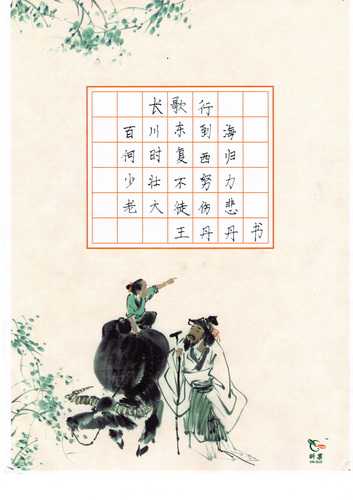 长歌行
百川东到海
何时复西归
少壮不努力
老大徒伤悲
王丹丹书